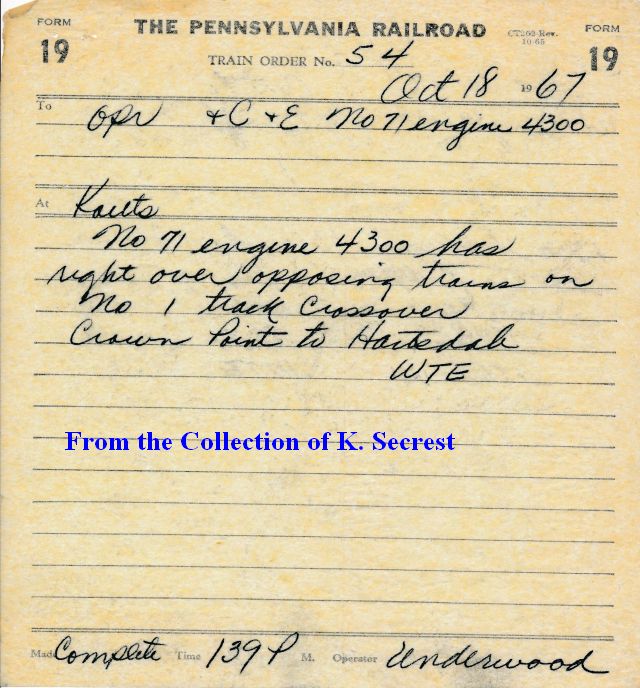 FORM 19 THE PENNSYLVANIA RAILROAD CT202-Rev. 10-65 FORM 19
TRAIN ORDER No. 54
Oct 18 1967
To Opr + C + E No 71 engine 4300
At Kouts
No 71 engine 4300 has
right over opposing trains on
No 1 track Crossover
Crown Point to Hartsdale
WTE
From the Collection of K. Secrest
Made Complete Time 139 P M. Operator Underwood